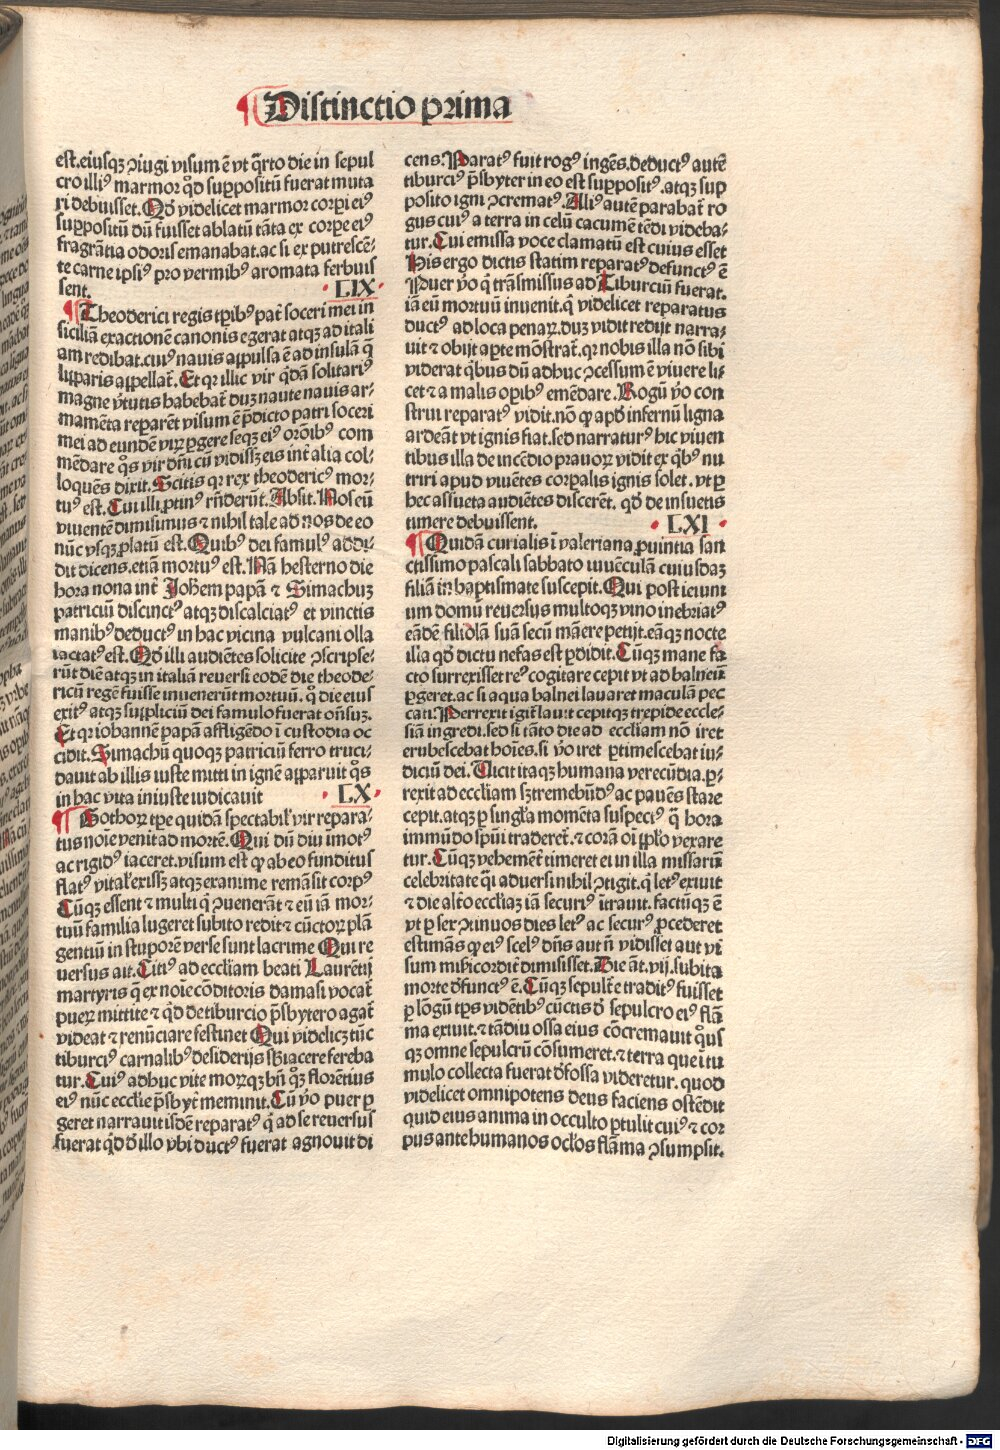 Distinctio prima
est. eiusqʒ ꝯiugi visum ē vt q̄rto die in sepul
cro illi⁹ marmor qd̄ suppositū fuerat muta
ri debuisset. Qd̄ videlicet marmor corpi ei⁹
suppositū dū fuisset ablatū tāta ex corpe ei⁹
fragrātia odoris emanabat. ac si ex putrescē-
te carne ipsi⁹ pro vermib⁹ aromata ferbuis
sent. LIX
Theoderici regis tꝑib⁹ pat̄ soceri mei in
siciliā exactionē canonis egerat atqʒ ad itali
am redibat. cui⁹ nauis appulsa ē ad insulā q̄
liparis appellat̄. Et qꝛ illic vir q̄dā solitari⁹
magne v̓tutis habebat̄ duʒ naute nauis ar-
mamēta repararēt visum ē p̄dicto patri soceri
mei ad eundē virꝝ ꝑgere seqʒ ei⁹ orōib⁹ com
mēdare q̊s vir dn̄i cū vidissʒ eis int̄ alia col-
loquēs dixit. Scitis qꝛ rex theoderic⁹ mor-
tu⁹ est. Cui illi ꝓtin⁹ rn̄derūt. Absit. Nos eū
viuentē dimisimus ⁊ nihil tale ad nos de eo
nūc vsqʒ ꝓlatū est. Quib⁹ dei famul⁹ addi-
dit dicens. etiā mortu⁹ est. Nā hesterno die
hora nona int̄ Johēm papā ⁊ Simachuʒ
patriciū discinct⁹ atqʒ discalciat⁹ et vinctis
manib⁹ deduct⁹ in hac vicina vulcani olla
iactat⁹ est. Qd̄ illi audiētes solicite ꝯscripse-
rūt diē atqʒ in italiā reuersi eodē die theode-
ricū regē fuisse inuenerūt mortuū. q̊ die eius
exit⁹ atqʒ suppliciū dei famulo fuerat oñsuʒ.
Et qꝛ iohannē papā affligēdo ī custodia oc
cidit. Simachū quoqʒ patriciū ferro truci-
dauit ab illis iuste mitti in ignē apparuit q̊s
in hac vita iniuste iudicauit LX
Gothoꝝ tꝑe quidā spectabił vir repara-
tus noīe venit ad mortē. Qui dū diu īmot⁹
ac rigid⁹ iaceret. visum est ꝙ ab eo funditus
flat⁹ vital̓ exissʒ atqʒ exanime remāsit corp⁹
Cūqʒ essent ⁊ multi q̇ ꝯuenerāt ⁊ eū iā mor-
tuū familia lugeret subito redit ⁊ cūctoꝝ plā
gentiū in stuporē verse sunt lacrime Qui re
uersus ait. Citi⁹ ad eccłiam beati Laurētij
martyris q̄ ex noīe cōditoris damasi vocat̄
pueꝝ mittite ⁊ qd̄ de tiburcio p̄sbytero agat̄
videat ⁊ renūciare festinet Qui videlicʒ tūc
tiburci⁹ carnalib⁹ desiderijs sb̄iacere fereba
tur. Cui⁹ adhuc vite moꝝqʒ bn̄ q̊ʒ florētius
ei⁹ nūc ecclie p̄sbyt̄ meminit. Cū v̓o puer ꝑ
geret narrauit isdē reparat⁹ q̇ ad se reuersus
fuerat qd̄ d̓ illo vbi duct⁹ fuerat agnouit di
cens. Parat⁹ fuit rog⁹ ingēs. deduct⁹ autē
tiburci⁹ p̄sbyter in eo est supposit⁹. atqʒ sup
posito igni ꝯcremat⁹. Ali⁹ autē parabat̄ ro
gus cui⁹ a terra in celū cacumē tēdi videba-
tur. Cui emissa voce clamatū est cuius esset
His ergo dictis statim reparat⁹ defunct⁹ ē
Puer v̓o q̇ trāsmissus ad Tiburciū fuerat.
iā eū mortuū inuenit. q̇ videlicet reparatus
duct⁹ ad loca penaꝝ. duʒ vidit redijt narra-
uit ⁊ obijt apte mōstrat̄. qꝛ nobis illa nō sibi
viderat q̇bus dū adhuc ꝯcessum ē viuere li-
cet ⁊ a malis opib⁹ emēdare. Rogū v̓o con
strui reparat⁹ vidit. nō ꝙ apd̄ infernū ligna
ardeāt vt ignis fiat. sed narratur⁹ hic viuen
tibus illa de incēdio prauoꝝ vidit ex q̇b⁹ nu
triri apud viuētes corpalis ignis solet. vt ꝑ
hec assueta audiētes discerēt. qd̄ de insuetis
timere debuissent. LXI
Quidā curialis ī valeriana ꝓuintia san
ctissimo pascali sabbato iuuēculā cuiusdaʒ
filiā in baptismate suscepit. Qui post ieiuni
um domū reuersus multoqʒ vino inebriat⁹
eādē filiolā suā secū māere petijt. eāqʒ nocte
illa qd̄ dictu nefas est ꝑdidit. Cūqʒ mane fa
cto surrexisset re⁹ cogitare cepit vt ad balneū
ꝑgeret. ac si aqua balnei lauaret maculā pec
cati. Perrexit igit̄ lauit cepitqʒ trepide eccle-
siā ingredi. sed si tāto die ad eccłiam nō iret
erubescebat hoīes. si v̓o iret ꝑtimescebat iu-
diciū dei. Uicit itaqʒ humana verecūdia. ꝑ-
rexit ad eccłiam sʒ tremebūd⁹ ac pauēs stare
cepit. atqʒ ꝑ singła momēta suspect⁹ q̄ hora
immūdo spūi traderet̄. ⁊ corā oī pp̄lo vexare
tur. Cūqʒ vehemēt̄ timeret ei in illa missarū
celebritate q̄i aduersi nihil ꝯtigit. q̇ let⁹ exiuit
⁊ die alto eccłiaʒ iā securi⁹ ītrauit. factūqʒ ē
vt ꝑ sex ꝯtinuos dies let⁹ ac secur⁹ ꝓcederet
estimās ꝙ ei⁹ scel⁹ dn̄s aut n̄ vidisset aut vi
sum mīsicordit̄ dimisisset. Die āt. vij. subita
morte d̓funct⁹ ē. Cūqʒ sepult̄e tradit⁹ fuisset
ꝑ lōgū tꝑs vidētib⁹ cūctis d̓ sepulcro ei⁹ flā
ma exiuit. ⁊ tādiu ossa eius cōcremauit q̊usqʒ
qʒ omne sepulcrū cōsumeret. ⁊ terra que ī tu
mulo collecta fuerat d̓fossa videretur. quod
videlicet omnipotens deus faciens ostēdit
quid eius anima in occulto ꝑtulit cui⁹ ⁊ cor
pus ante humanos ocłos flāma ꝯsumpsit.
Digitalisierung gefördert durch die Deutsche Forschungsgemeinschaft - DFG